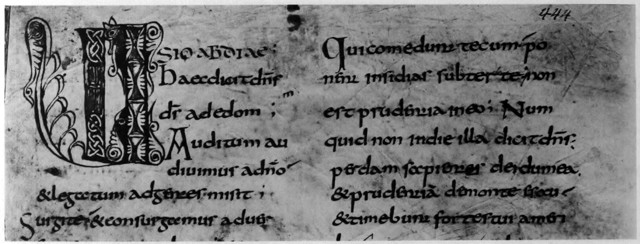 444
VISIO abdiae:
haec dicit dn̄s
d̄s ad edom;
Auditum au
diuimus a dn̄o
& legatum ad gentes misit;
Surgite & consurgamus aduer
Qui comedunt tecum po
nent insidias subter te; non
est prudentia in eo; Num
quid non in die illa dicit dn̄s:
perdam sapientes de idumea.
& prudentiā de monte esau
& timebunt fortes tui a meri